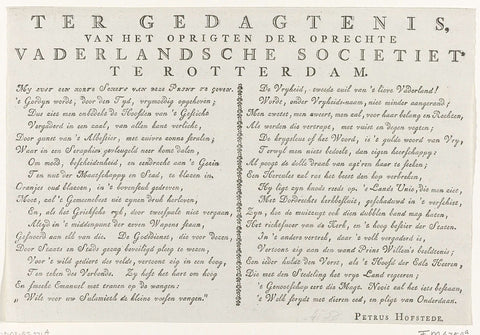 TER GEDAGTENIS,
VAN HET OPRIGTEN DER OPRECHTE
VADERLANDSCHE SOCIETIET
TE ROTTERDAM.
My zoud een korte Schets van deze Prent te geven.
't Gordyn wordt, door den Tyd, vrymoedig opgeheven;
Dus ziet men eindelyk de Hoofden van 't Gestichte
Vergaderd in een zaal, van allen kant verlicht,
Door gunst van 't Alziend, met zuivre zonne stralen;
Waar in een Seraphim gevleugeld neer komt dalen,
Om moed, bescheidenheid, en eendracht aan 't Gezin
Ten nut der Maatschappy en Stad, te blazen in.
Oranjes oud blazoen, in 't bovenstuk gedreven,
Moet, zal 't Gemeenebest uit zynen druk herleven,
En, als het Grieksche ryk, door tweespalt niet vergaan,
Altyd in 't middenpunt der zeven Wapens staan,
Gesnoerd aan elk van die. De Goudbloemen, die voor dezen,
Door Staats en Stads zorg beveiligd pleeg te wezen,
Voor 't wild gediert des velds, vertoont zig in een boog,
Ten teken des Verbonds. Zy heft het hart om hoog
En smeekt Emanuel met tranen op de wangen:
„ Wilt voor uw Sulamieth de kleine vossen vangen."
De Vryheid, tweede zuil van 't lieve Vaderland!
Wordt, onder Vryheids-naam, niet minder aangerand;
Men zwetst, men zweert, men zal, voor haar belang en Rechten,
Als werden die vertrapt, met vuist en degen vegten;
De dryfveer of het Woord, is 't gulde woord van Vry,
Terwyl men niets bedoelt, dan eigen heerschappy:
Al poogt de dolle draak van agt'ren haar te steken;
Een Hercules zal ras het beest den kop verbreken,
Hy ligt zyn knods reeds op. 't Lands Unie, die men ziet,
Met Dordrechts kerkgeloof, geschaduwd in 't verschiet,
Zyn, hoe de muitzugt ook dien dubblen band mag haten,
Het richtsnoer van de Kerk, en 't hoog bestier der Staten.
In 't anders vertrek, daar 't volk vergaderd is,
Vertoont zig aan den wand Prins Willem's beeltenis;
Een ieder huldt den Vorst, als 't Hoofd der Edle Heeren,
Die met den Stedeling het vrye Land regeeren:
't Genootschap eert die Magt. Nooit zal het iets bestaan,
't Welk strydt met dieren eed, en pligt van Onderdaan.
PETRUS HOFSTEDE.